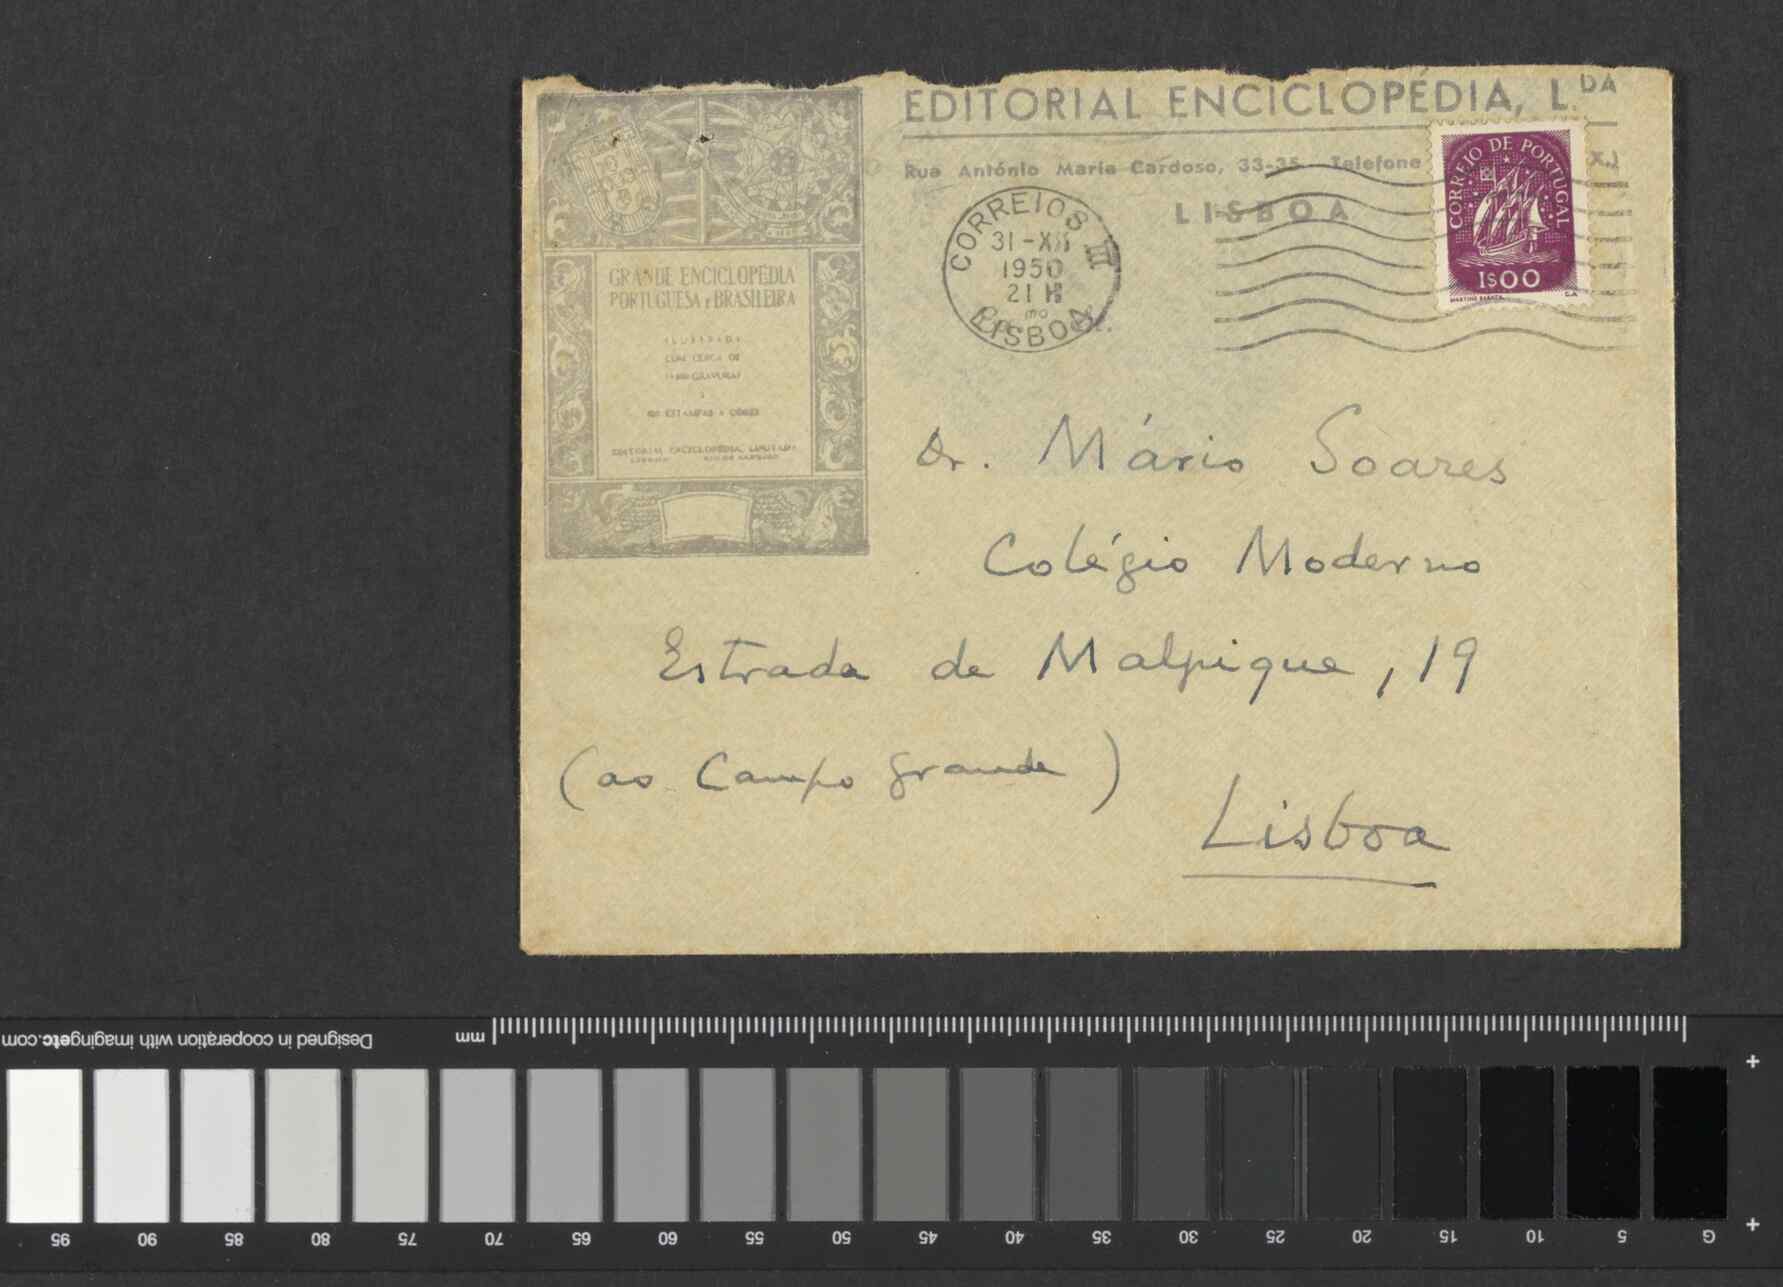 EDITORIAL ENCICLOPÉDIA, L.DA
Rua António Maria Cardoso, 33-35 - Telefone
X.)
LISBOA
CORREIO DE PORTUGAL
1$00
MARTINS BARATA
CORREIOS III
31-XII
1950
21 H
LISBOA
GRANDE ENCICLOPÉDIA
PORTUGUESA e BRASILEIRA
ILUSTRADA
COM CERCA DE
GRAVURAS
E
ESTAMPAS A CÔRES
EDITORIAL ENCICLOPÉDIA, LIMITADA
Dr. Mário Soares
Colégio Moderno
Estrada de Malpique, 19
(ao Campo Grande)
Lisboa
mm
Designed in cooperation with imagingetc.com
95 90 85 80 75 70 65 60 55 50 45 40 35 30 25 20 15 10 5 G